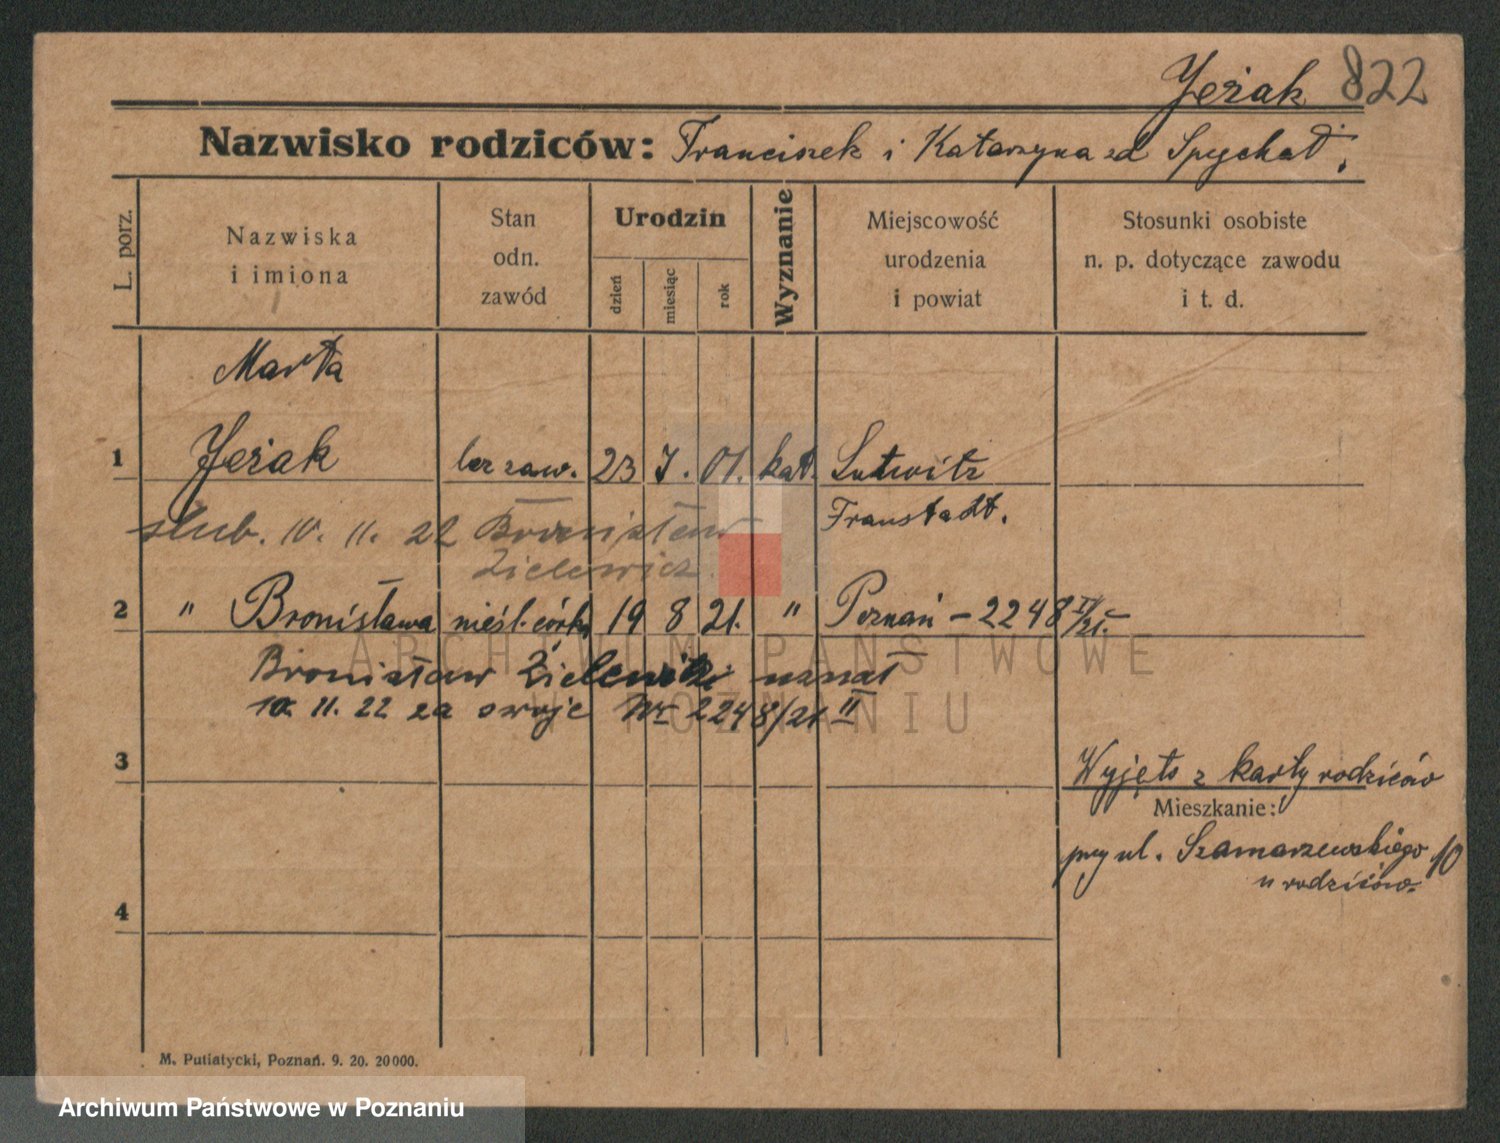 Jeżak 822
Nazwisko rodziców: Franciszek i Katarzyna zd Spychał.
L. porz.
Nazwiska
i imiona
Stan
odn.
zawód
Urodzin
dzień
miesiąc
rok
Wyznanie
Miejscowość
urodzenia
i powiat
Stosunki osobiste
n. p. dotyczące zawodu
i t. d.
Marta
1 Jeżak bez zaw. 23 7. 01. kat.
Fraustadt.
ślub. 10. 11. 22 Bronisław
Zielewicz
2 " Bronisława nieśl. córka 19 8 21. " Poznań - 2248 II/21.
Bronisław Zielewicz uznał
10. 11. 22 za swoje Nr 2248/21 II
3
Wyjęto z karty rodziców
Mieszkanie:
przy ul. Szamarzewskiego 10
u rodziców.
4
M. Putiatycki, Poznań. 9. 20. 20000.
ARCHIWUM PAŃSTWOWE
W POZNANIU
Archiwum Państwowe w Poznaniu